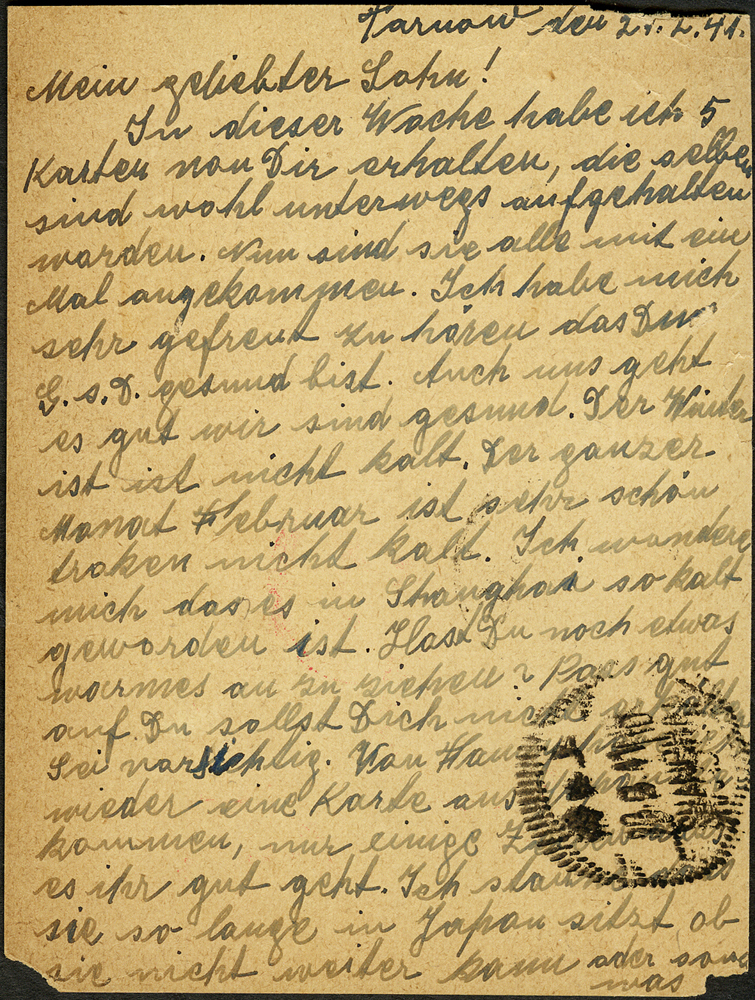 Tarnow den 21.2.41.
Mein geliebter Sohn!
In dieser Woche habe ich 5
Karten von Dir erhalten, die selben
sind wohl unterwegs aufgehalten
worden. Nun sind sie alle mit ein
Mal angekommen. Ich habe mich
sehr gefreut zu hören das Du
G. s. D. gesund bist. Auch uns geht
es gut wir sind gesund. Der Winter
ist ist nicht kalt. Der ganzer
Monat Februar ist sehr schön
troken nicht kalt. Ich wundere
mich das es in Shanghai so kalt
geworden ist. Hast Du noch etwas
warmes an zu ziehen? Pass gut
auf Du sollst Dich nicht
Sei vorsichtig. Von
wieder eine Karte aus
kommen, nur einige
es ihr gut geht. Ich
sie so lange in Japan sitzt ob
sie nicht weiter kann oder sonst
was